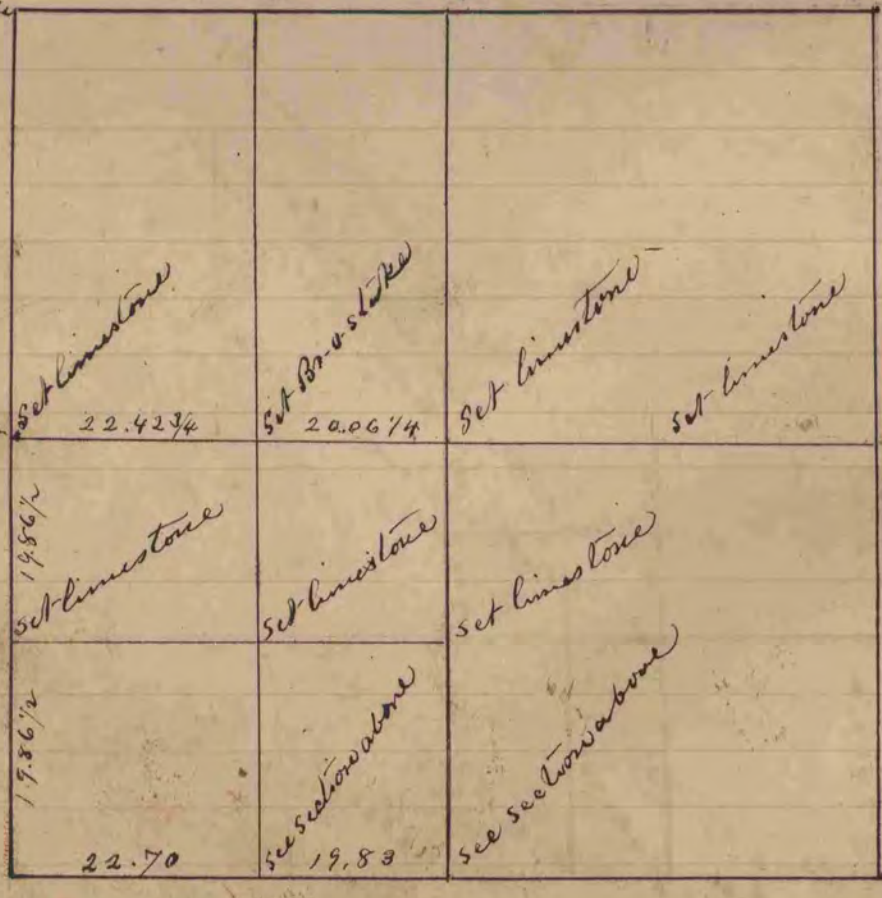 set limestone
22.42 3/4
set
stake
20.06 1/4
set limestone
set limestone
19.86 1/2
set limestone
set limestone
set limestone
19.86 1/2
22.70
see section above
19.83
see section above